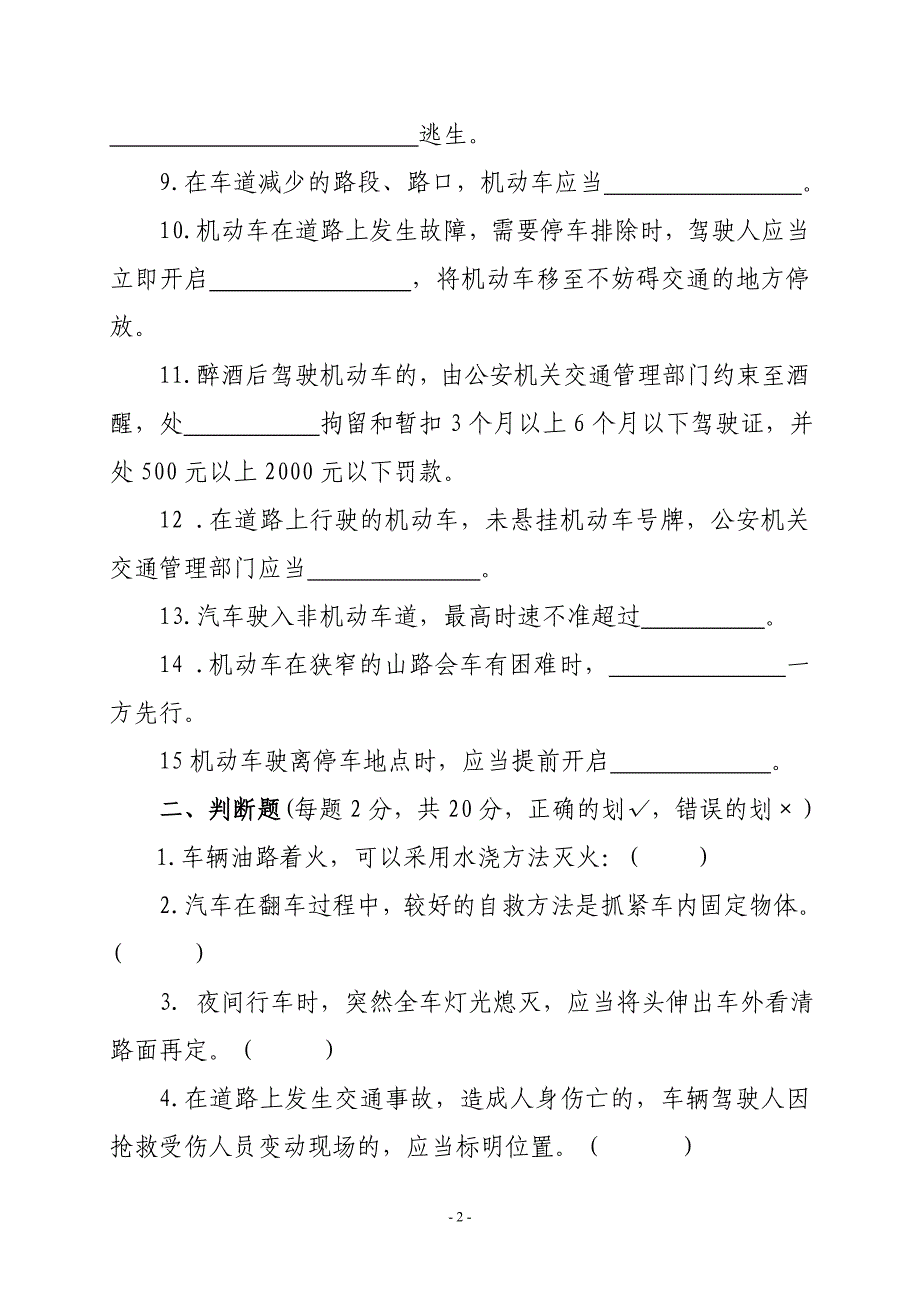 ____________________逃生。
9.在车道减少的路段、路口，机动车应当____________。
10.机动车在道路上发生故障，需要停车排除时，驾驶人应当
立即开启____________，将机动车移至不妨碍交通的地方停
放。
11.醉酒后驾驶机动车的，由公安机关交通管理部门约束至酒
醒，处________拘留和暂扣3个月以上6个月以下驾驶证，并
处500元以上2000元以下罚款。
12 .在道路上行驶的机动车，未悬挂机动车号牌，公安机关
交通管理部门应当__________。
13.汽车驶入非机动车道，最高时速不准超过_______。
14 .机动车在狭窄的山路会车有困难时，__________一
方先行。
15机动车驶离停车地点时，应当提前开启_________。
二、判断题(每题2分，共20分，正确的划√，错误的划×)
1.车辆油路着火，可以采用水浇方法灭火：(    )
2.汽车在翻车过程中，较好的自救方法是抓紧车内固定物体。
(    )
3. 夜间行车时，突然全车灯光熄灭，应当将头伸出车外看清
路面再定。(    )
4.在道路上发生交通事故，造成人身伤亡的，车辆驾驶人因
抢救受伤人员变动现场的，应当标明位置。(    )
- 2 -